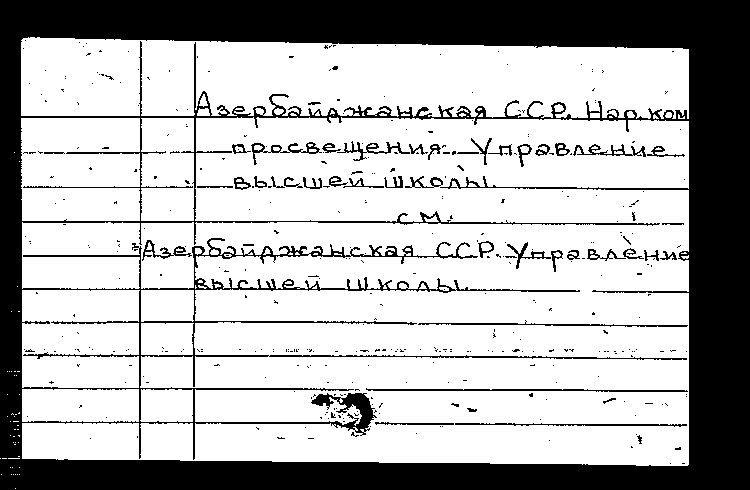 Азербайджанская ССР. Нар.ком
просвещения. Управление
высшей школы.
см.
Азербайджанская ССР. Управление
высшей школы.